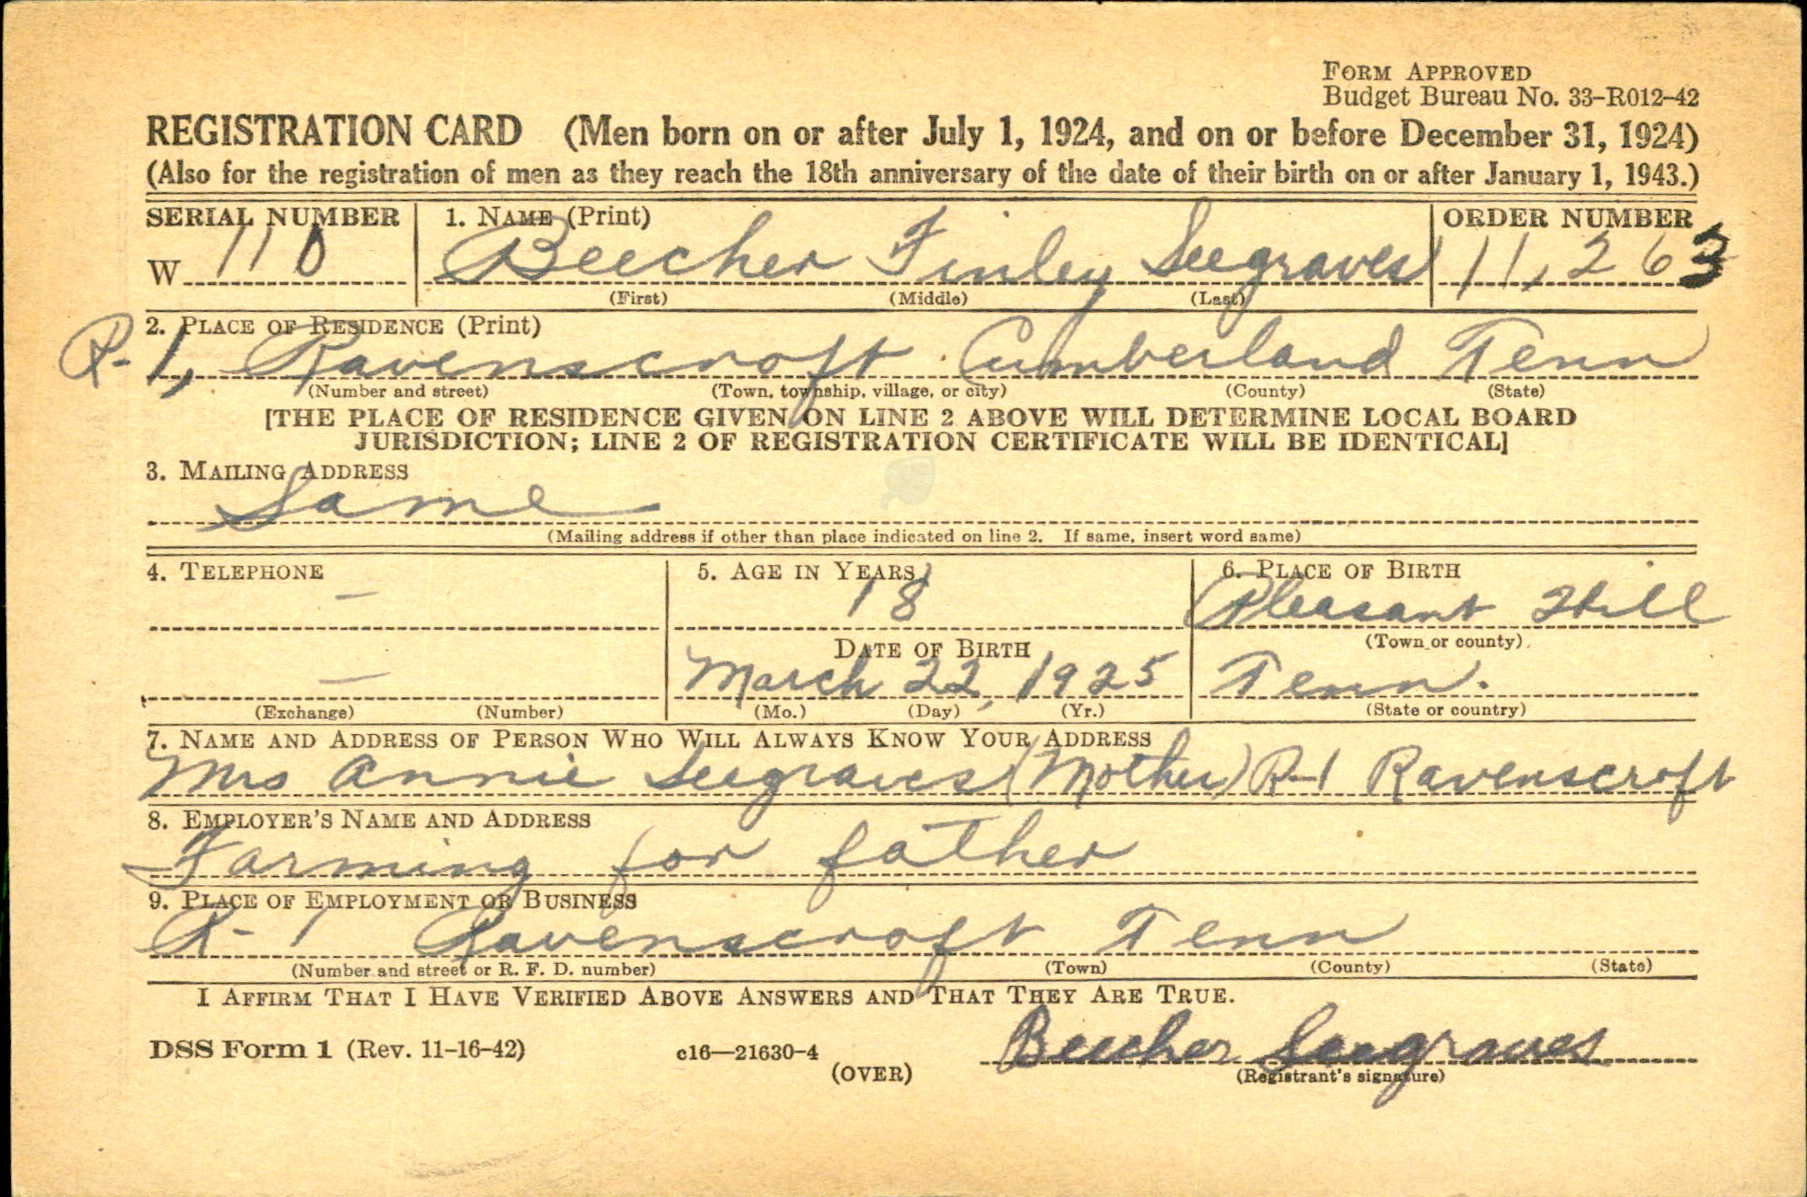 FORM APPROVED
Budget Bureau No. 33–R012–42
REGISTRATION CARD (Men born on or after July 1, 1924, and on or before December 31, 1924)
(Also for the registration of men as they reach the 18th anniversary of the date of their birth on or after January 1, 1943.)
SERIAL NUMBER 1. NAME (Print) ORDER NUMBER
W 110 Beecher Finley Seegraves 11,263
(First) (Middle) (Last)
2. PLACE OF RESIDENCE (Print)
R-1, Ravenscroft Cumberland Tenn
(Number and street) (Town, township, village, or city) (County) (State)
[THE PLACE OF RESIDENCE GIVEN ON LINE 2 ABOVE WILL DETERMINE LOCAL BOARD
JURISDICTION; LINE 2 OF REGISTRATION CERTIFICATE WILL BE IDENTICAL]
3. MAILING ADDRESS
Same
(Mailing address if other than place indicated on line 2. If same, insert word same)
4. TELEPHONE 5. AGE IN YEARS 6. PLACE OF BIRTH
– 18 Pleasant Hill
DATE OF BIRTH (Town or county)
– March 22, 1925 Tenn.
(Exchange) (Number) (Mo.) (Day) (Yr.) (State or country)
7. NAME AND ADDRESS OF PERSON WHO WILL ALWAYS KNOW YOUR ADDRESS
Mrs Annie Seegraves (Mother) R-1 Ravenscroft
8. EMPLOYER'S NAME AND ADDRESS
Farming for father
9. PLACE OF EMPLOYMENT OR BUSINESS
R-1 Ravenscroft Tenn
(Number and street or R. F. D. number) (Town) (County) (State)
I AFFIRM THAT I HAVE VERIFIED ABOVE ANSWERS AND THAT THEY ARE TRUE.
Beecher Seegraves
DSS Form 1 (Rev. 11-16-42) c16—21630-4
(OVER) (Registrant's signature)